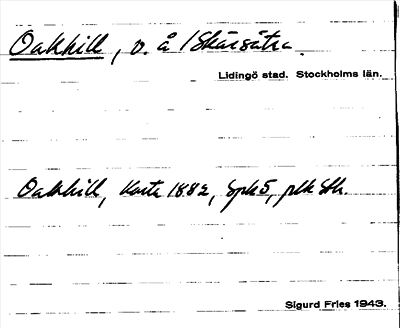 Oakhill, v. å /Skärsätra
Lidingö stad. Stockholms län.
Oakhill, Karta 1882, Spk 5, plk Sth.
Sigurd Fries 1943.